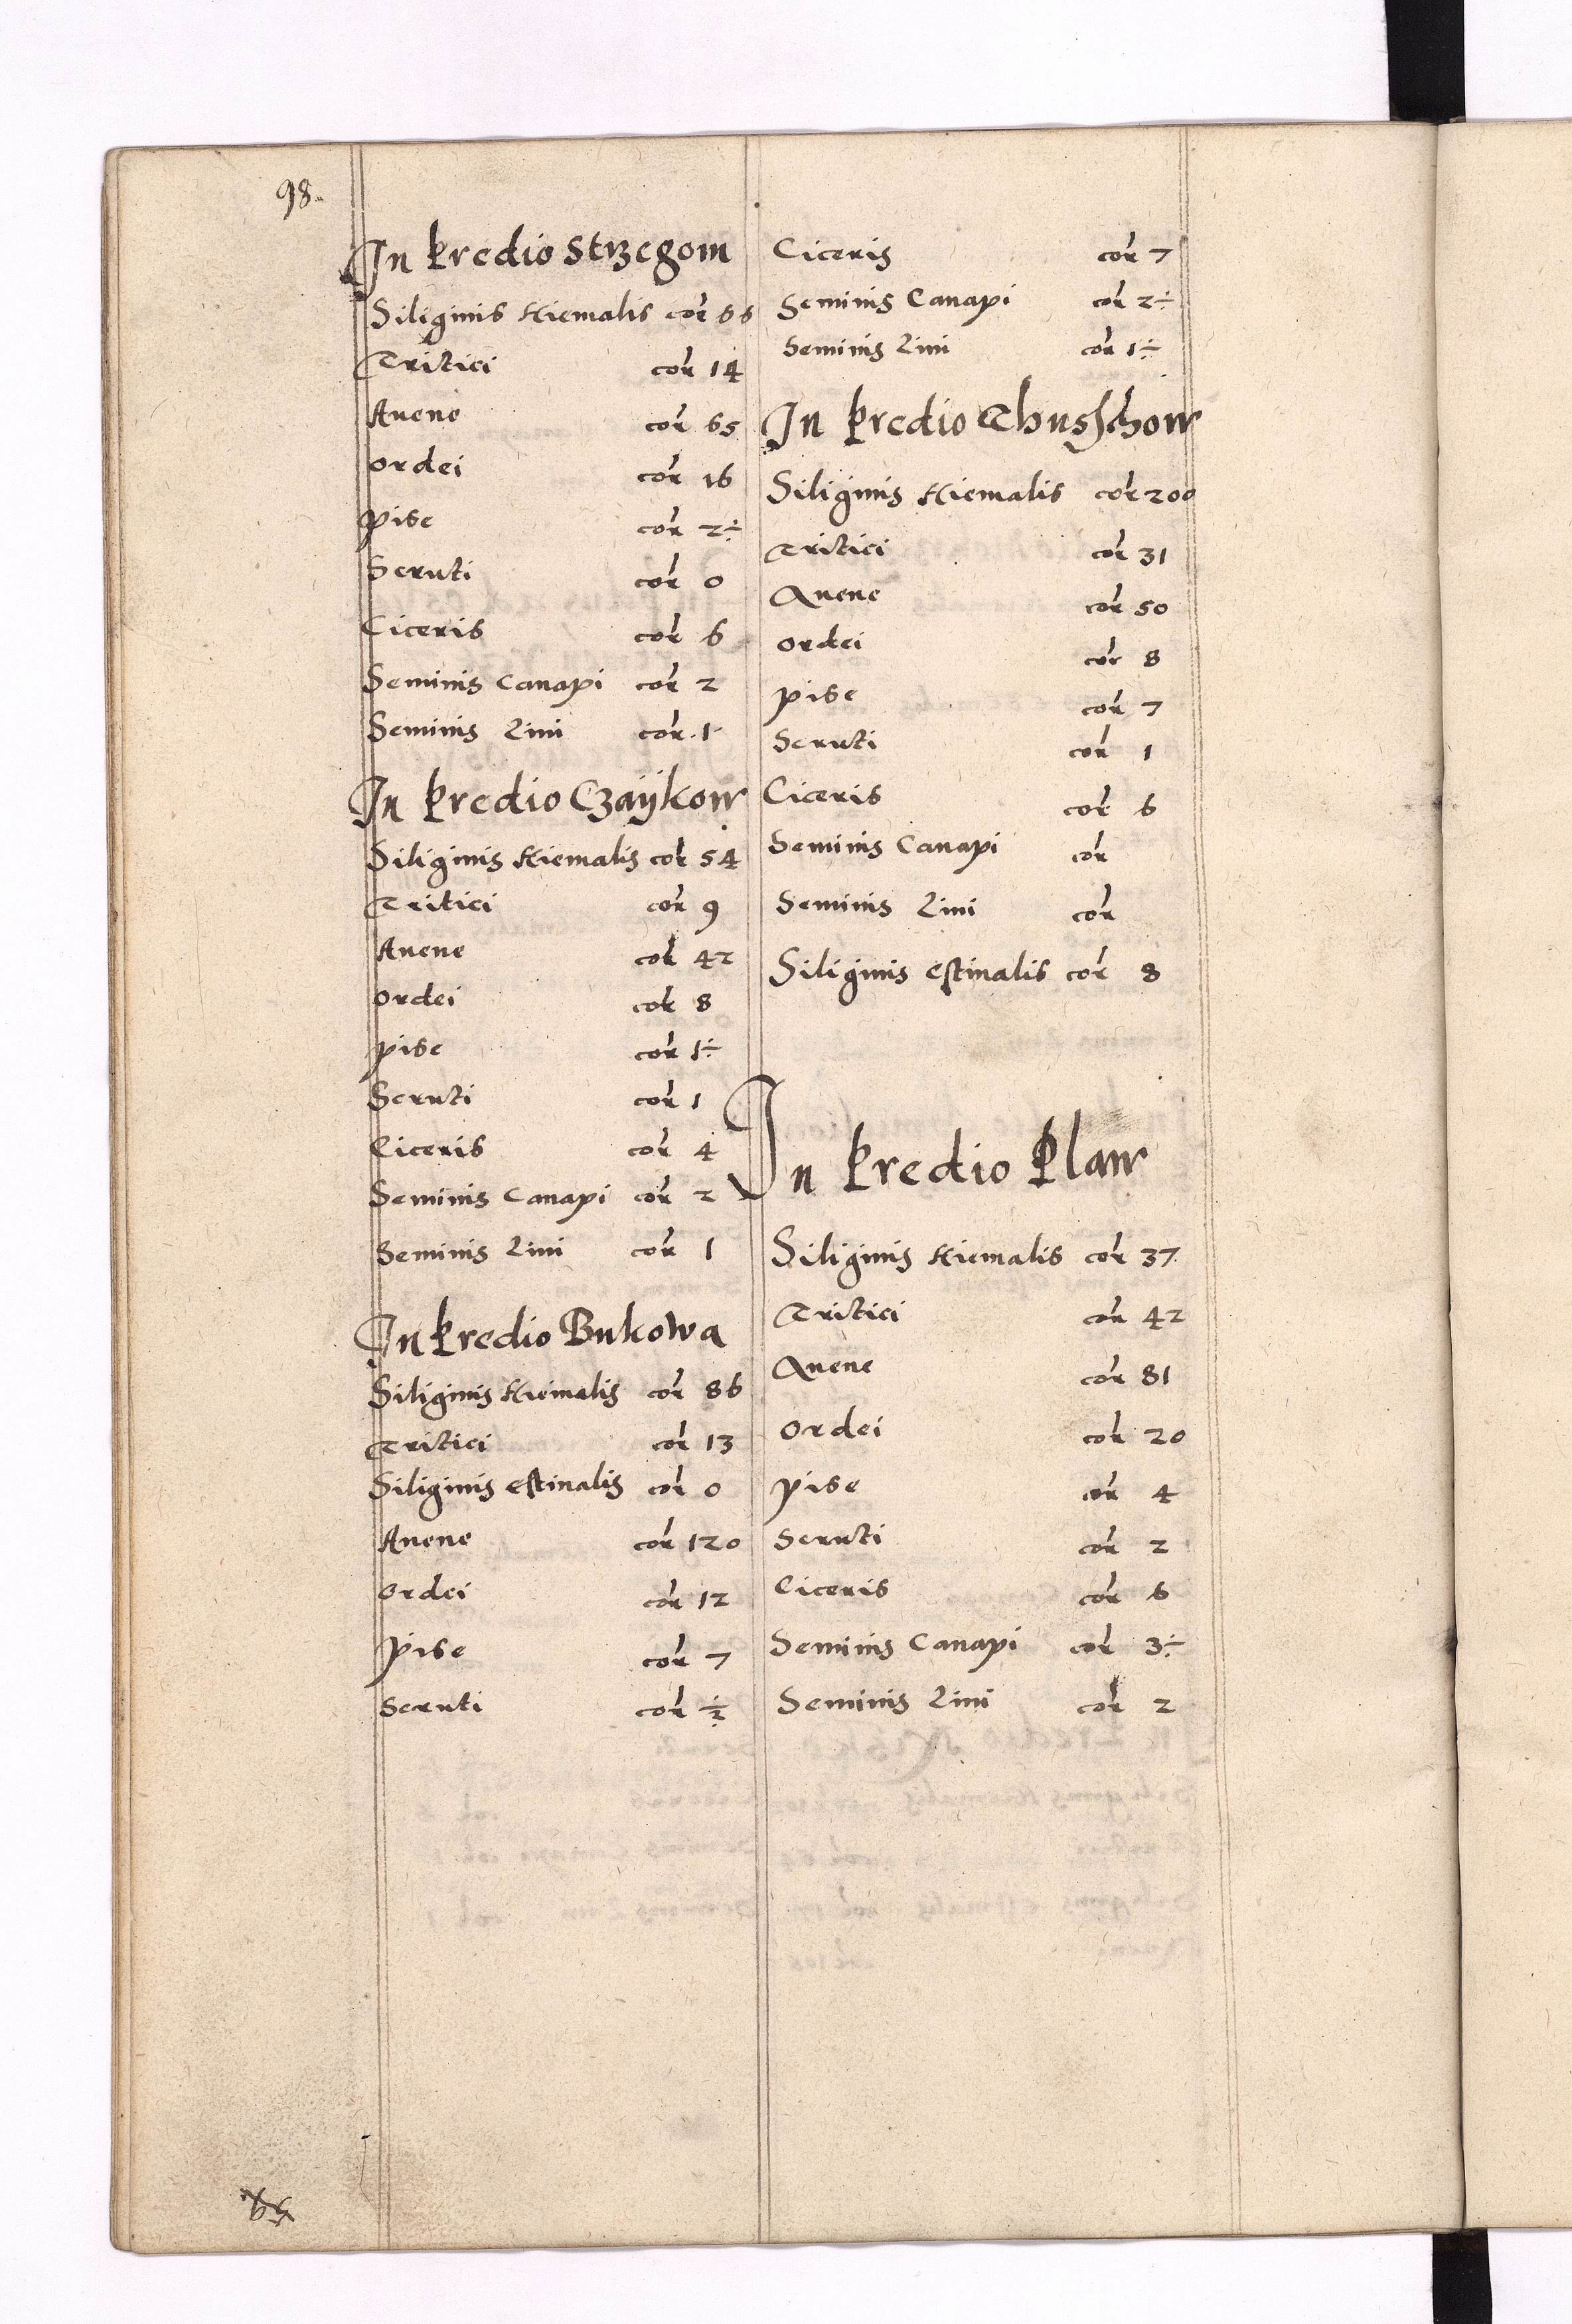 98.
In predio Strzegom
Siliginis hiemalis cor 66
Tritici cor 14
Auene cor 65
Ordei cor 16
Pise cor 2÷
Seruti cor 0
Ciceris cor 6
Seminis Canapi cor 2
Seminis Lini cor 1
In predio Czaÿkow
Siliginis hiemalis cor 54
Tritici cor 9
Auene cor 42
Ordei cor 8
Pise cor 1÷
Seruti cor 1
Ciceris cor 4
Seminis Canapi cor 2
Seminis Lini cor 1
In predio Bukowa
Siliginis hiemalis cor 86
Tritici cor 13
Siliginis estiualis cor 0
Auene cor 120
Ordei cor 12
Pise cor 7
Seruti cor ½
Ciceris cor 7
Seminis Canapi cor 2÷
Seminis Lini cor 1÷
In predio Thusschow
Siliginis hiemalis cor 200
Tritici cor 31
Auene cor 50
Ordei cor 8
Pise cor 7
Seruti cor 1
Ciceris cor 6
Seminis Canapi cor
Seminis Lini cor
Siliginis estiualis cor 8
In predio Plaw
Siliginis hiemalis cor 37
Tritici cor 42
Auene cor 81
Ordei cor 20
Pise cor 4
Seruti cor 2
Ciceris cor 6
Seminis Canapi cor 3÷
Seminis Lini cor 2